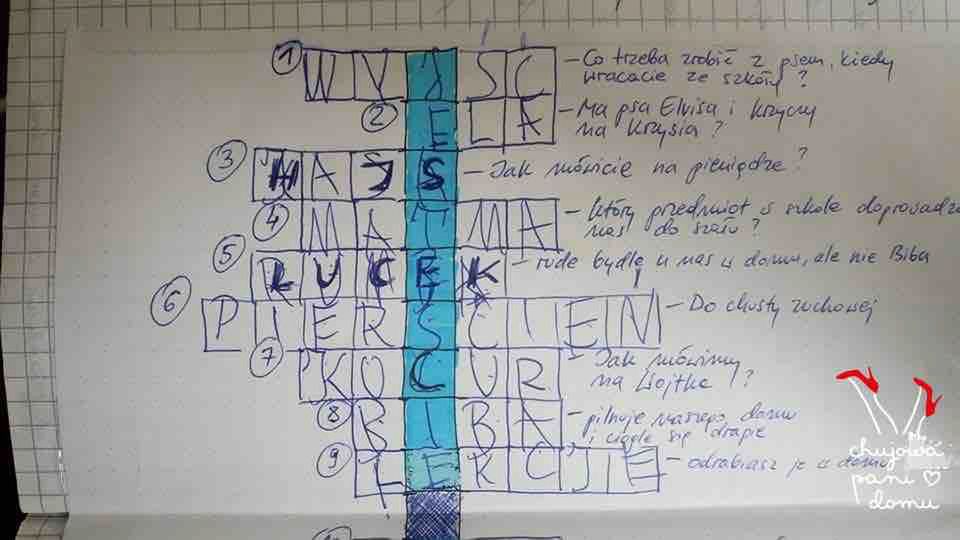 1 WYJŚĆ – Co trzeba zrobić z psem, kiedy
wracacie ze szkoły?
2 ELA – Ma psa Elvisa i krzyczy
na Krzysia?
3 HAJS – Jak mówicie na pieniądze?
4 MATMA – który przedmiot w szkole doprowadza
nas do szału?
5 LUCEK – rude bydlę u nas w domu, ale nie Biba
6 PIERŚCIEŃ – Do chusty zuchowej
7 KOCUR – Jak mówimy
na Wojtka?
8 BIBA – pilnuje naszego domu
i ciągle się drapie
9 LEKCJE – odrabiasz je w domu
chujowa
pani
domu